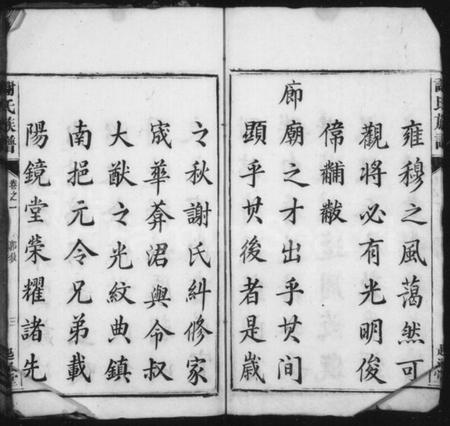 雍穆之風藹然可
觀將必有光明俊
偉黼黻
廊廟之才出乎其間
顕乎其後者是歲
之秋謝氏糾修家
宬華莾涒與令叔
大猷之光紋典鎮
南挹元令兄弟載
陽鏡堂荣耀諸先
謝氏族譜
卷之一
三